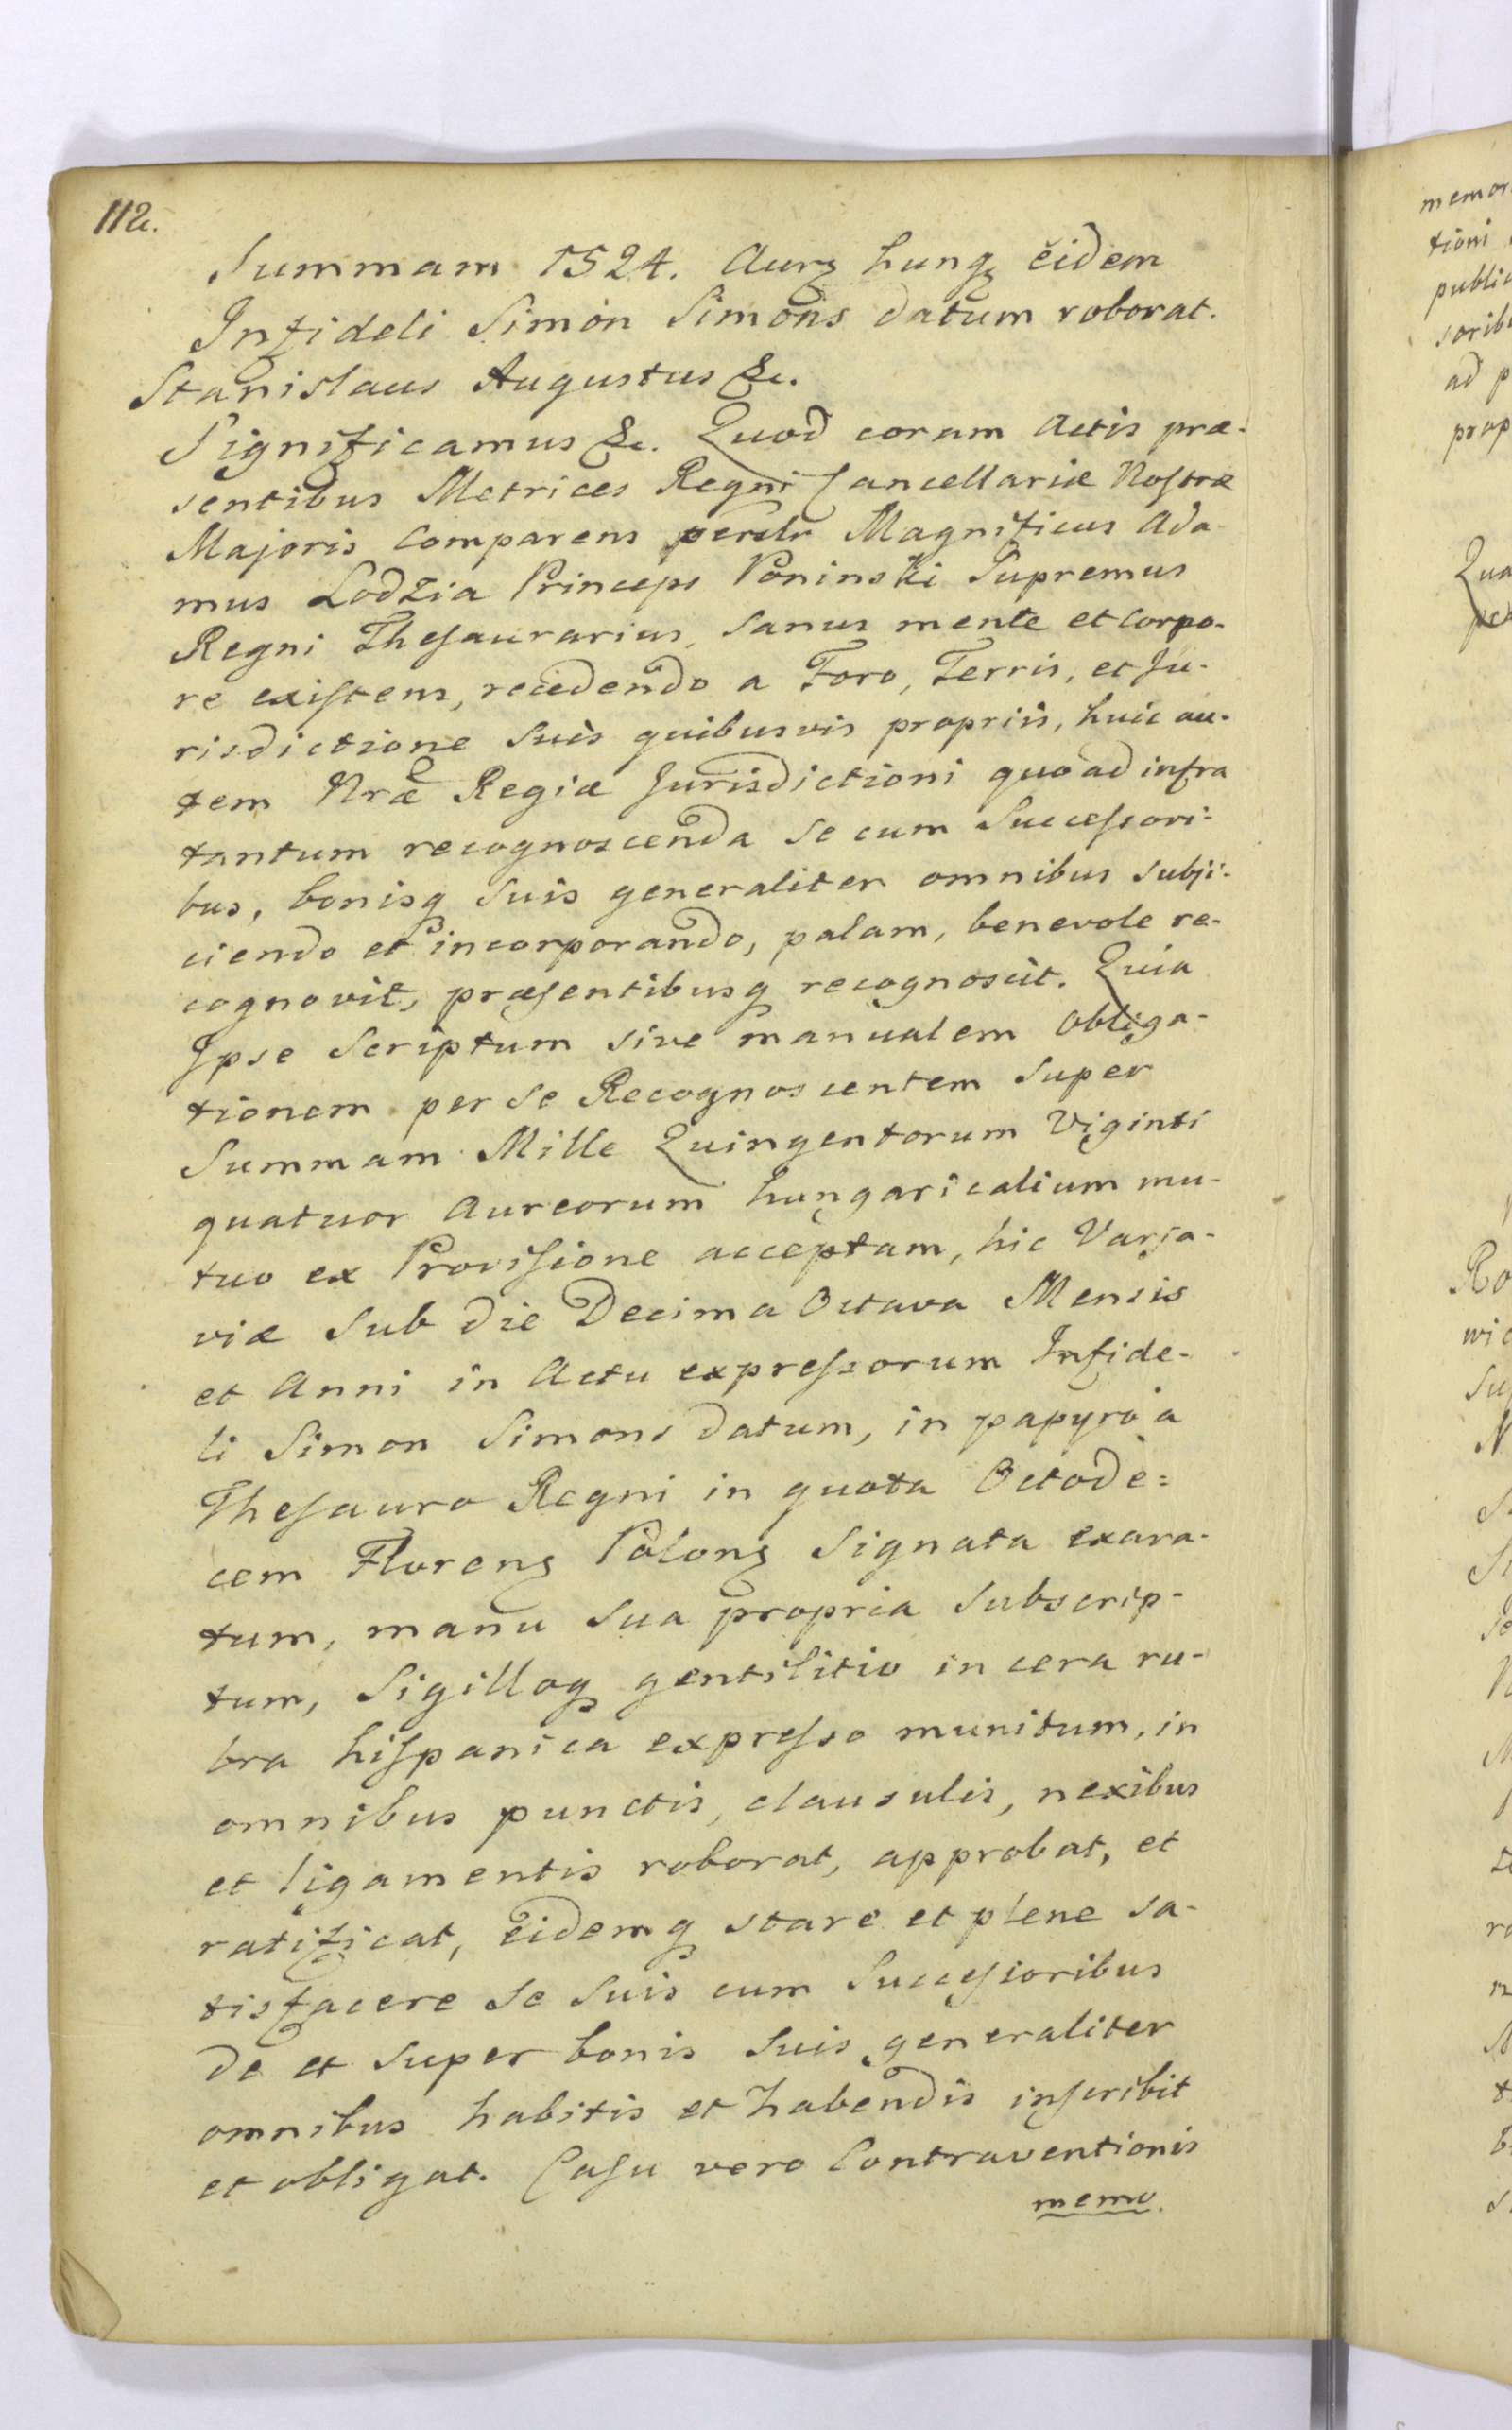 112.
Summam 1524. Aurȝ hungȝ eidem
Infideli Simon Simons datum roborat.
Stanislaus Augustus &c.
Significamus &c. Quod coram Actis præ-
sentibus Metrices Regni Cancellariæ Nostræ
Majoris Comparens persltr Magnificus Ada-
mus Lodzia Princeps Poninski Supremus
Regni Thesaurarius, sanus mente et corpo-
re existens, recedendo a Foro, Terris, et Ju-
risdictione suis quibusvis propriis, huic au-
tem Nræ Regiæ Jurisdictioni quoad infra
tantum recognoscenda se cum Successori-
bus, bonisq suis generaliter omnibus subji-
ciendo et incorporando, palam, benevole re-
cognovit, præsentibusq recognoscit. Quia
Ipse Scriptum sive manualem Obliga-
tionem per se Recognoscentem super
Summam Mille Quingentorum Viginti
quatuor Aureorum hungaricalium mu-
tuo ex Provisione acceptam, hic Varsa-
viæ sub die Decima Octava Mensis
et Anni in Actu expressorum Infide-
li Simon Simons datum, in papyro a
Thesauro Regni in quota Octode=
cem Florenȝ Polonȝ signata exara-
tum, manu sua propria subscrip-
tum, Sigilloq gentilitio in cera ru-
bra hispanica expresso munitum, in
omnibus punctis, clausulis, nexibus
et ligamentis roborat, approbat, et
ratificat, eidemq stare et plene sa-
tisfacere se suis cum Successoribus
de et super bonis suis generaliter
omnibus habitis et habendis inscribit
et obligat. Casu vero Contraventionis
memo.
memor
tioni
public
soribu
ad p
prop
Qua
Ro
wic